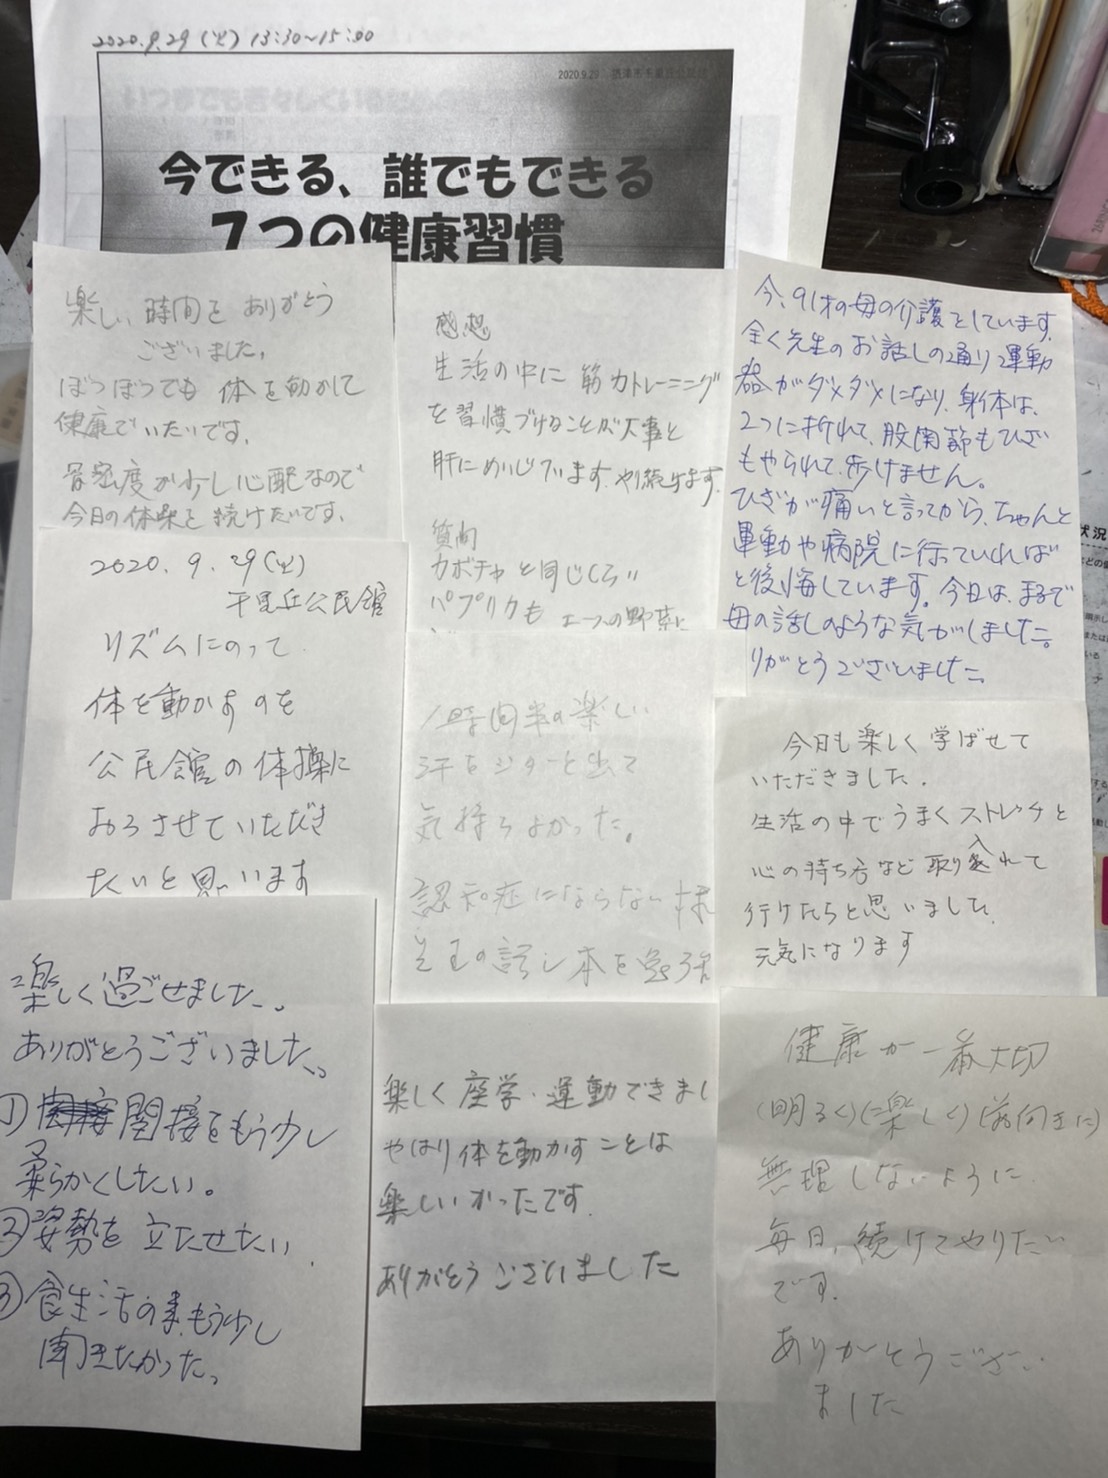 2020.9.29(火) 13:30~15:00
2020.9.29
今できる、誰でもできる
7つの健康習慣
楽しい時間を ありがとう
ございました。
ぼつぼつでも 体を動かして
健康でいたいです。
骨密度が少し心配なので
今日の体操を続けたいです。
感想
生活の中に 筋力トレーニング
を習慣づけることが大事と
肝にめいじています。やり続けます。
質問
カボチャと同じくらい
パプリカも の野菜に
今、91才の母の介護をしています。
全く先生のお話しの通り運動
器がダメダメになり、身体は、
2つに折れて、股関節もひざ
もやられて、歩けません。
ひざが痛いと言ってから、ちゃんと
運動や病院に行っていれば
と後悔しています。今日は、まるで
母の話しのような気がしました。
りがとうございました。
2020. 9. 29(火)
千里丘公民館
リズムにのって
体を動かすのを
公民館の体操に
おろさせていただき
たいと思います
1時間半の楽しい
汗もジターと出て
気持ちよかった。
認知症にならない様
先生の話し本を勉強
今日も楽しく学ばせて
いただきました.
生活の中でうまくストレッチと
心の持ち方など取り入れて
行けたらと思いました
元気になります
楽しく過ごせました。
ありがとうございました。
① 関接をもう少し
柔らかくしたい。
②姿勢を 立たせたい
③食生活の事もう少し
聞きたかった。
楽しく座学・運動できまし
やはり体を動かすことは
楽しいかったです.
ありがとうございました
健康が一番大切
(明るく)(楽しく)(前向きに)
無理しないように
毎日、続けてやりたい
です.
ありがとうござい
ました